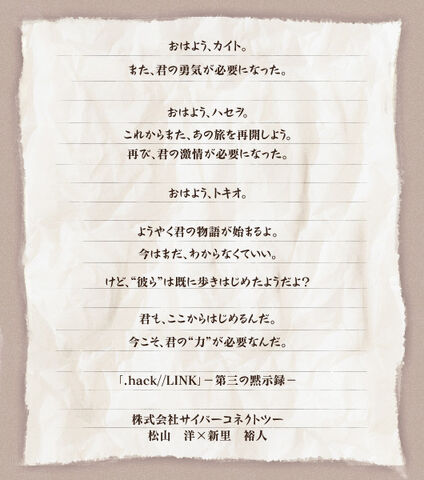 おはよう、カイト。
また、君の勇気が必要になった。
おはよう、ハセヲ。
これからまた、あの旅を再開しよう。
再び、君の激情が必要になった。
おはよう、トキオ。
ようやく君の物語が始まるよ。
今はまだ、わからなくていい。
けど、“彼ら”は既に歩きはじめたようだよ？
君も、ここからはじめるんだ。
今こそ、君の“力”が必要なんだ。
「.hack//LINK」－第三の黙示録－
株式会社サイバーコネクトツー
松山　洋×新里　裕人